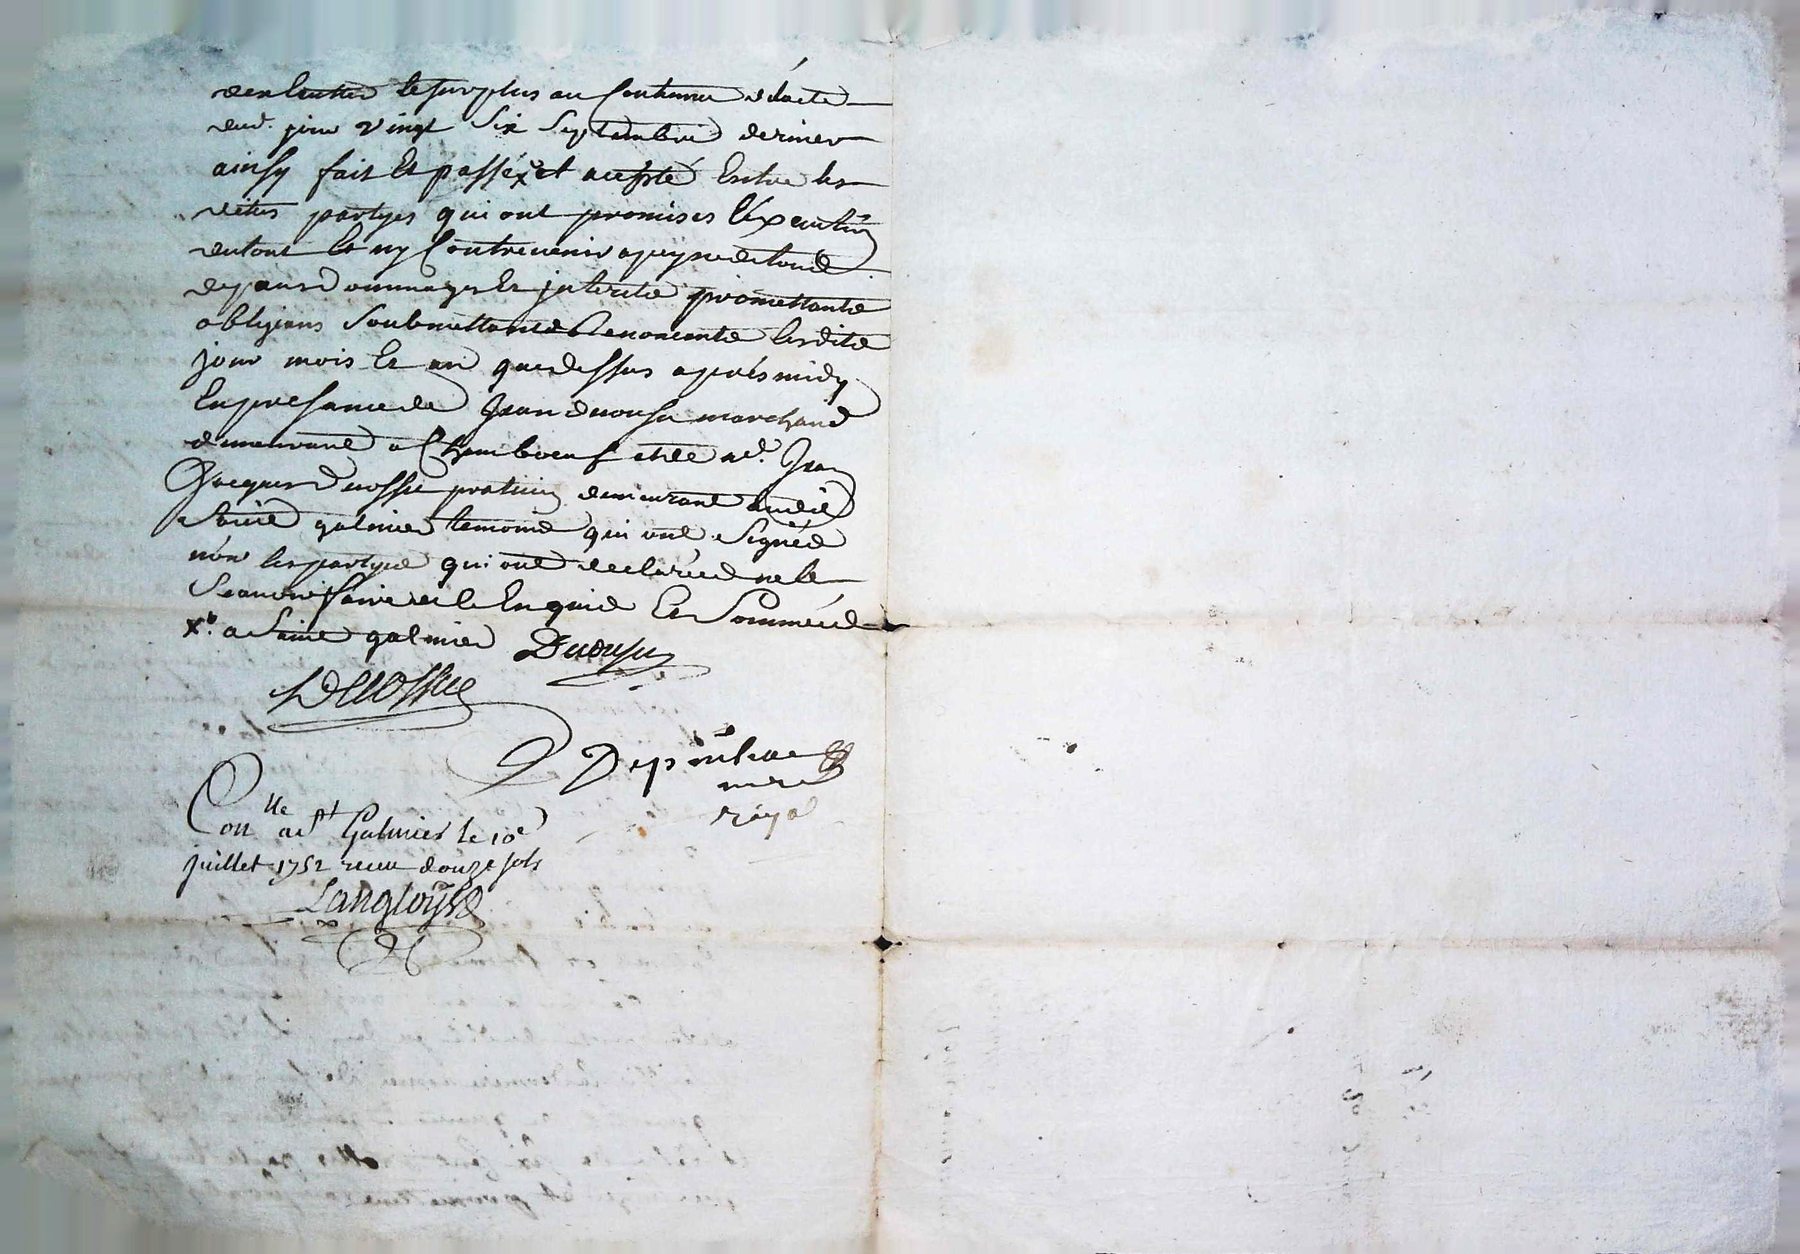 dexecuter le surplus au Contenu dudacte
dud. jour vingt Six Septembre dernier
ainsy fait Et passé x et accepté Entre les
dites partyes qui ont promises l'éxecution
du tout Et ny Contrevenir a peyne de tous
depans Dommages Et jnterets promettants
obligeans Soubmettants Renonceants lesdits
jour mois Et an que dessus aprés midy
En presance de Jean duvousu marchand
demeurand a Chamboeuf Et de Me. Jean
Jacques Denossie praticien demeurant audit
Saint galmier temoins qui ont Signés
non les partyes qui ont declarées ne le
Scavoir faire de ce Enquis Et Sommées
x a Saint galmier
Con.lle a St Galmier le 10e
juillet 1752 receu douze sols
Langloys